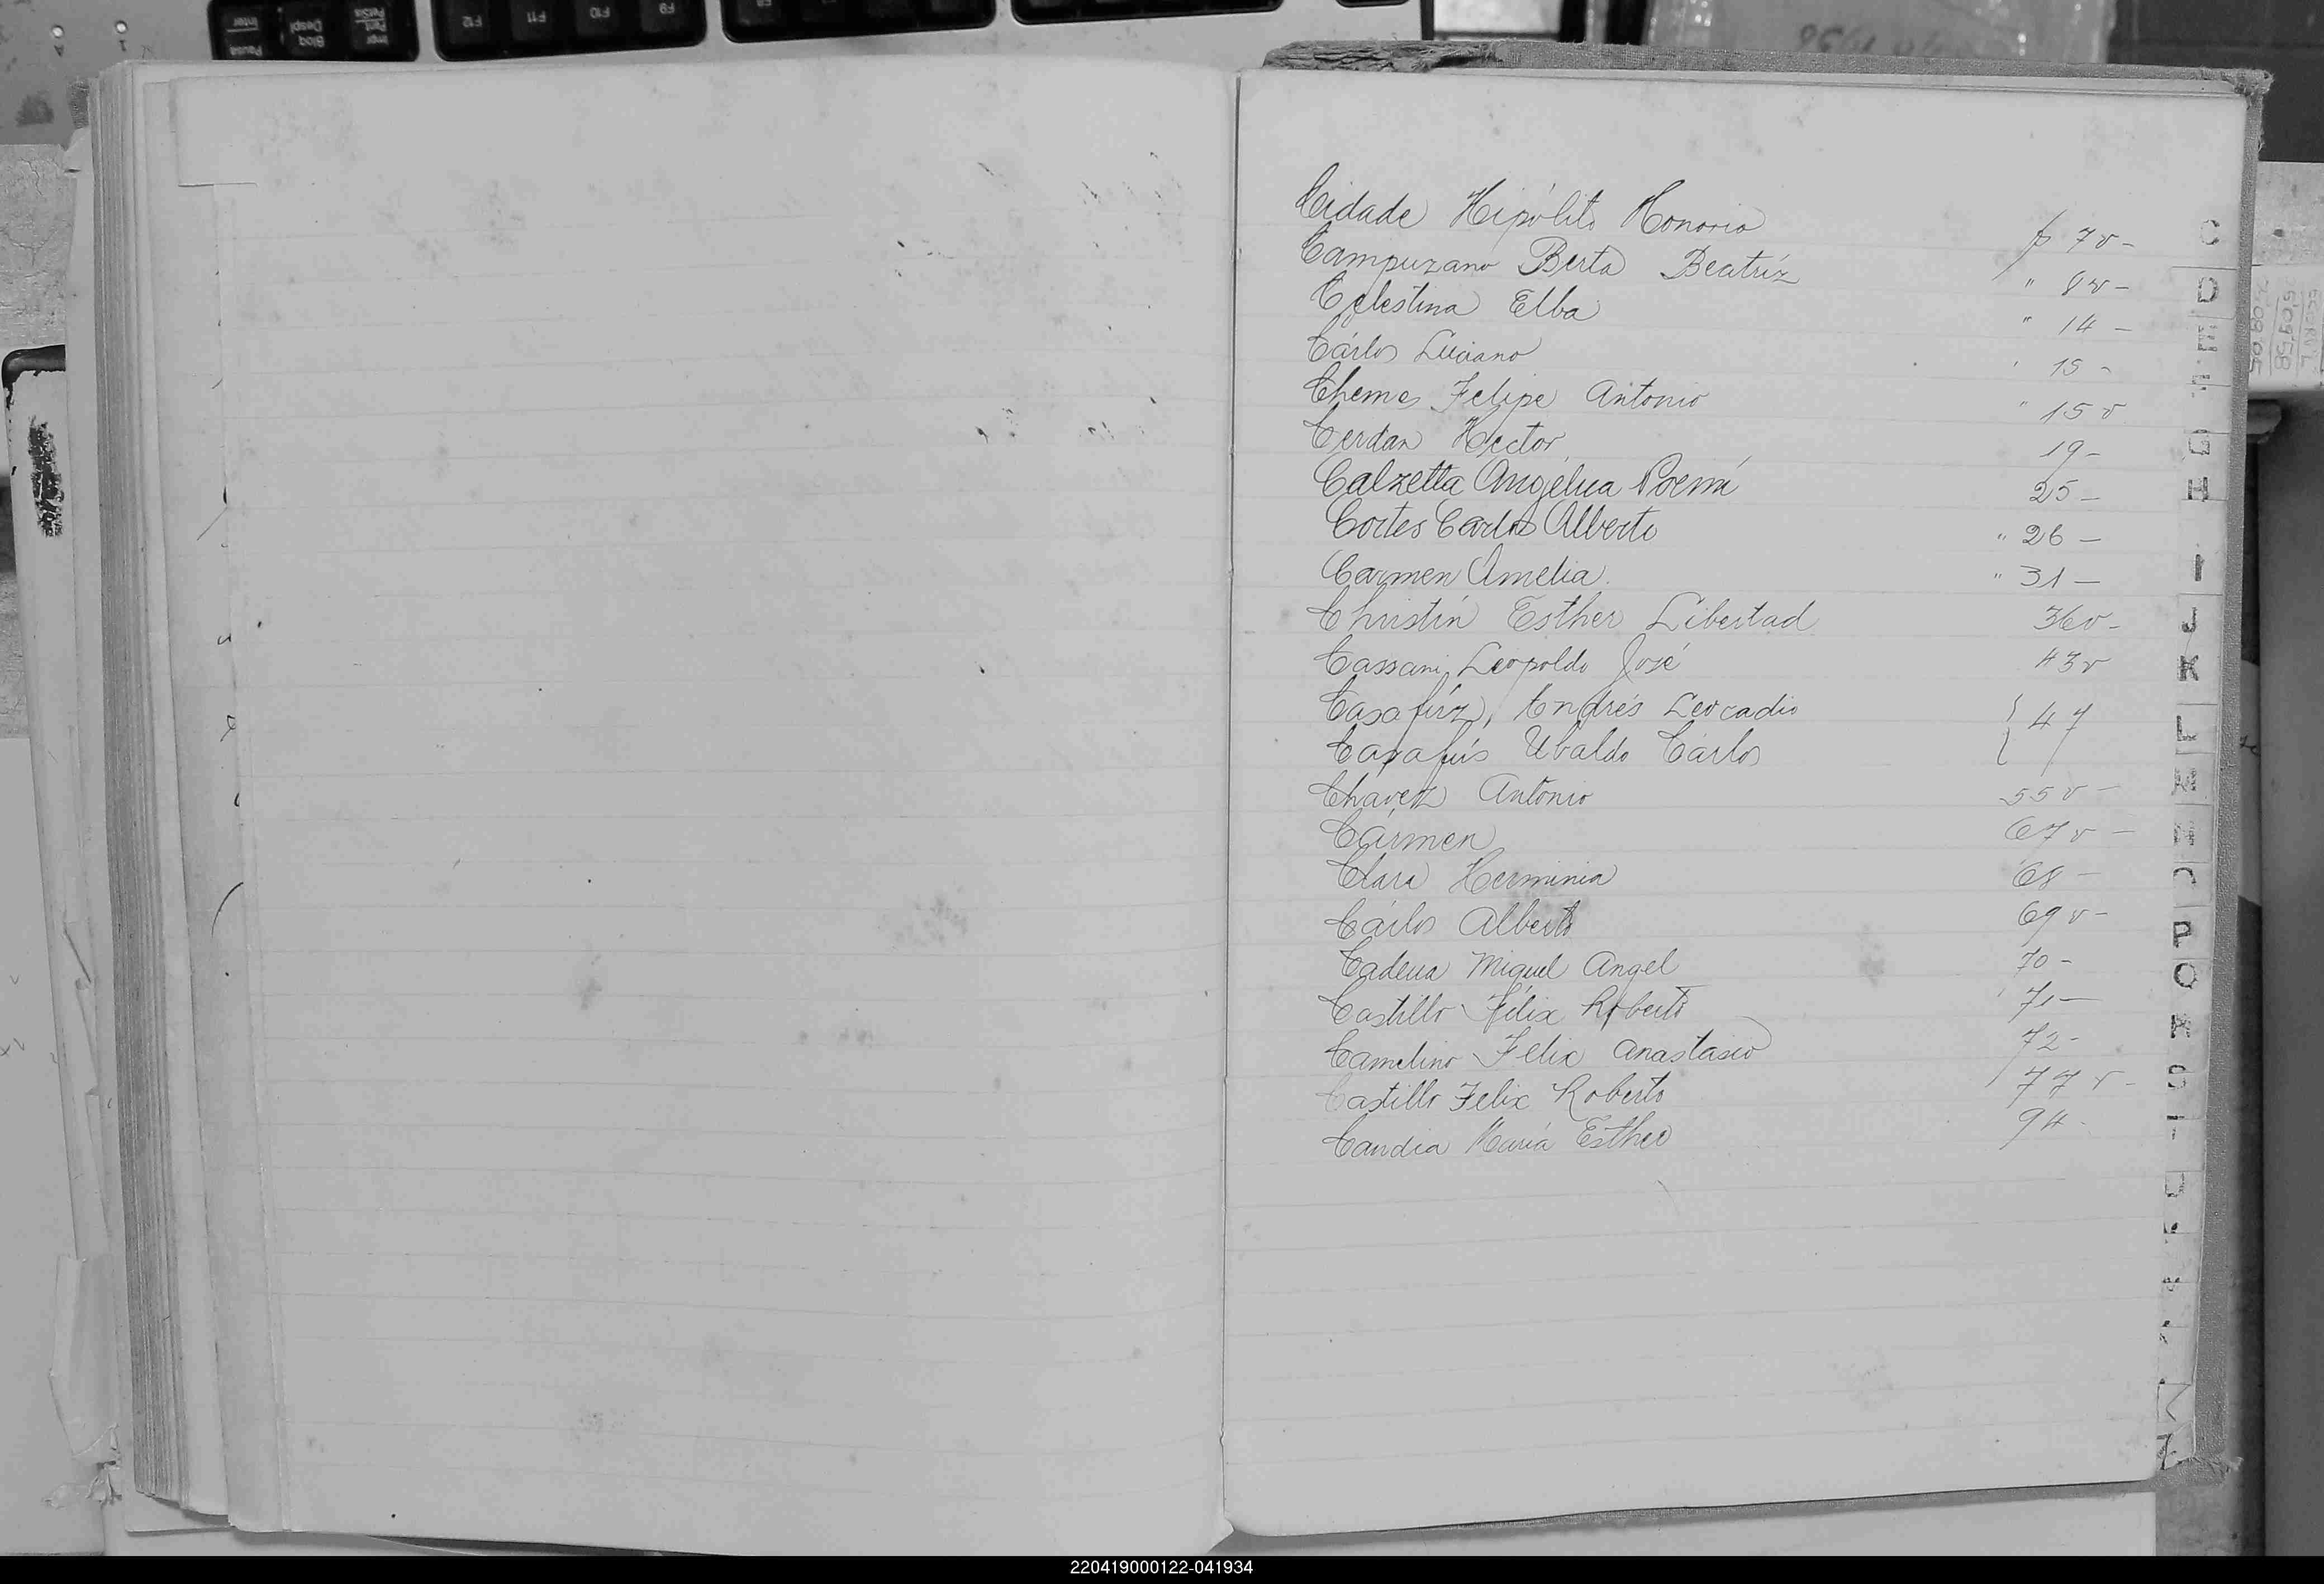 Cidade Hipólito Honorio f 7v-
Campuzano Berta Beatríz " 8v-
Celestina Elba " 14-
Cárlos Luciano " 15-
Chemes Felipe Antonio " 15v
Cerdan Hector 19-
Calzetta Angélica Noemí 25-
Cortes Carlos Alberto " 26-
Carmen Amelia. " 31-
Christín Esther Libertad 36v-
Cassani Leopoldo José 43v
Casafúz, Andrés Leocadio } 47
Casafús Ubaldo Cárlos
Chavez Antonio 55v-
Cármen 67v-
Clara Herminia 68-
Cárlos Alberto 69v-
Cadena Miguel Angel 70-
Castillo Félix Roberto 71-
Camelino Félix Anastasio 72-
Castillo Felix Roberto 77v-
Candia María Esther 94-
C
D
E
F
G
H
I
J
K
L
M
N
O
P
Q
R
S
T
U
Z
F12
F11
F10
F9
220419000122-041934